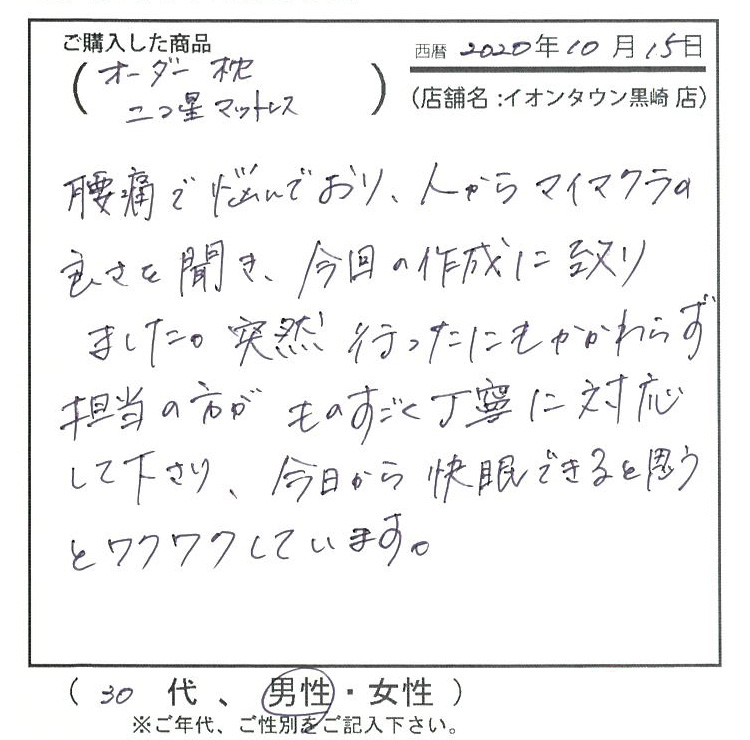 ご購入した商品
西暦 2020年10月15日
(オーダー枕
二つ星マットレス)
(店舗名:イオンタウン黒崎 店)
腰痛で悩んでおり、人からマイマクラの
良さを聞き、今回の作成に至り
ました。突然行ったにもかかわらず
担当の方がものすごく丁寧に対応
して下さり、今日から快眠できると思う
とワクワクしています。
(30代、男性・女性)
※ご年代、ご性別をご記入下さい。